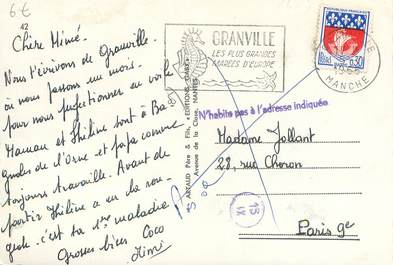 6€
42
Chère Mémé.
Nous t'écrivons de Granville
où nous passons un mois.
pour nous perfectionner en voile
Maman et Thilène sont à Ba-
gnoles de l'Orne et papa comme
toujours travaille. Avant de
partir Thilène a eu la rou-
geole. c'est sa 1ère maladie
Grosses bises Coco
GRANVILLE
LES PLUS GRANDES
MARÉES D'EUROPE
MANCHE
0,30
N'habite pas à l'adresse indiquée
ARTAUD Père & Fils, EDITIONS "GABY"
Avenue de la Close, NANTES
Madame Jollant
28, rue Choron
Paris 9e
15
IX